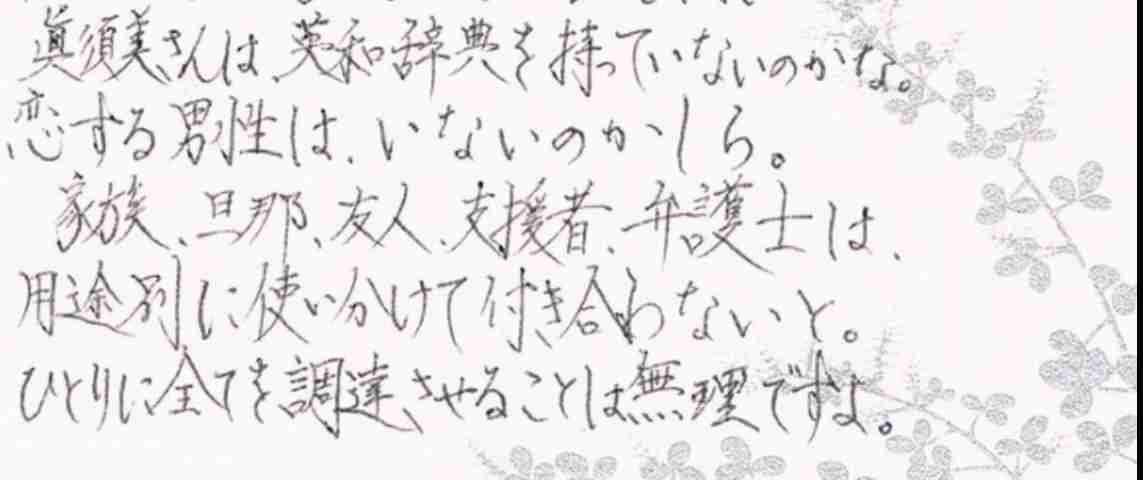 眞須美さんは、英和辞典を持っていないのかな。
恋する男性は、いないのかしら。
家族、旦那、友人、支援者、弁護士は、
用途別に使い分けて付き合わないと。
ひとりに全てを調達させることは無理ですよ。